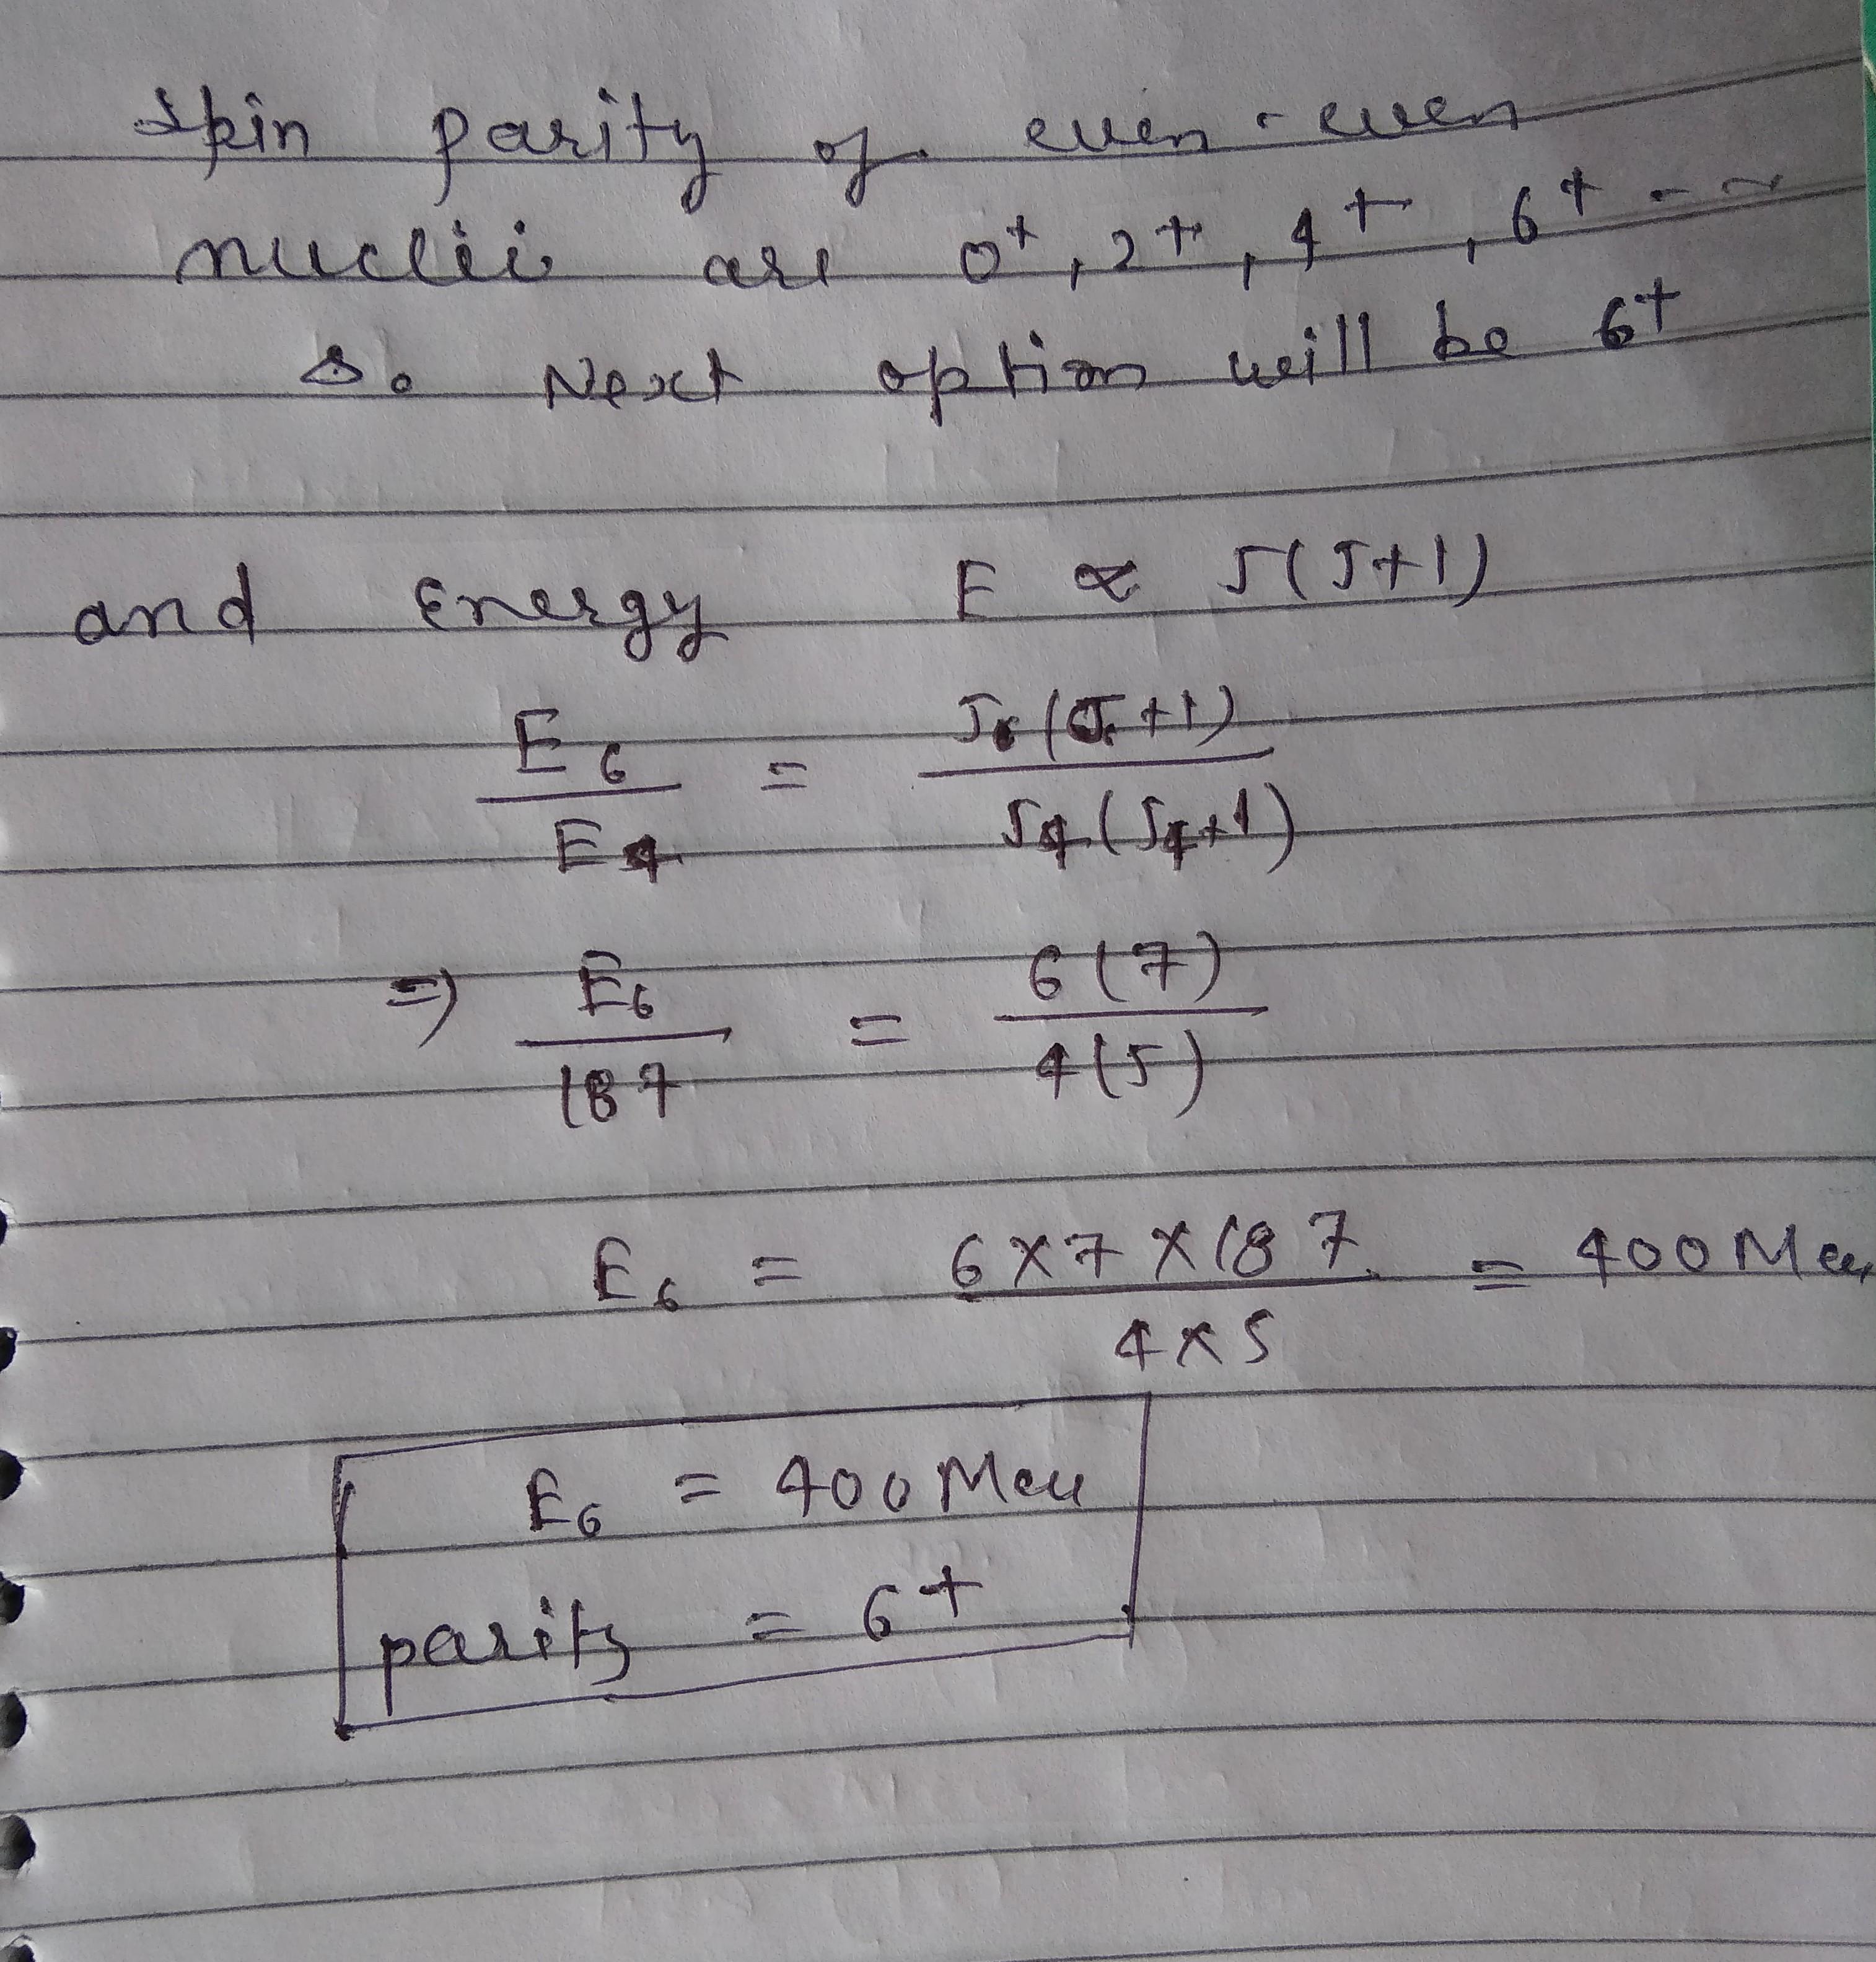 Spin parity of even-even
nucleii are 0⁺, 2⁺, 4⁺, 6⁺ - ~
So Next option will be 6⁺
and Energy E ∝ J(J+1)
E₆/E₄ = J₆(J₆+1)/J₄(J₄+1)
⇒ E₆/187 = 6(7)/4(5)
E₆ = 6×7×187/4×5 = 400 Mev
E₆ = 400 Mev
parity = 6⁺